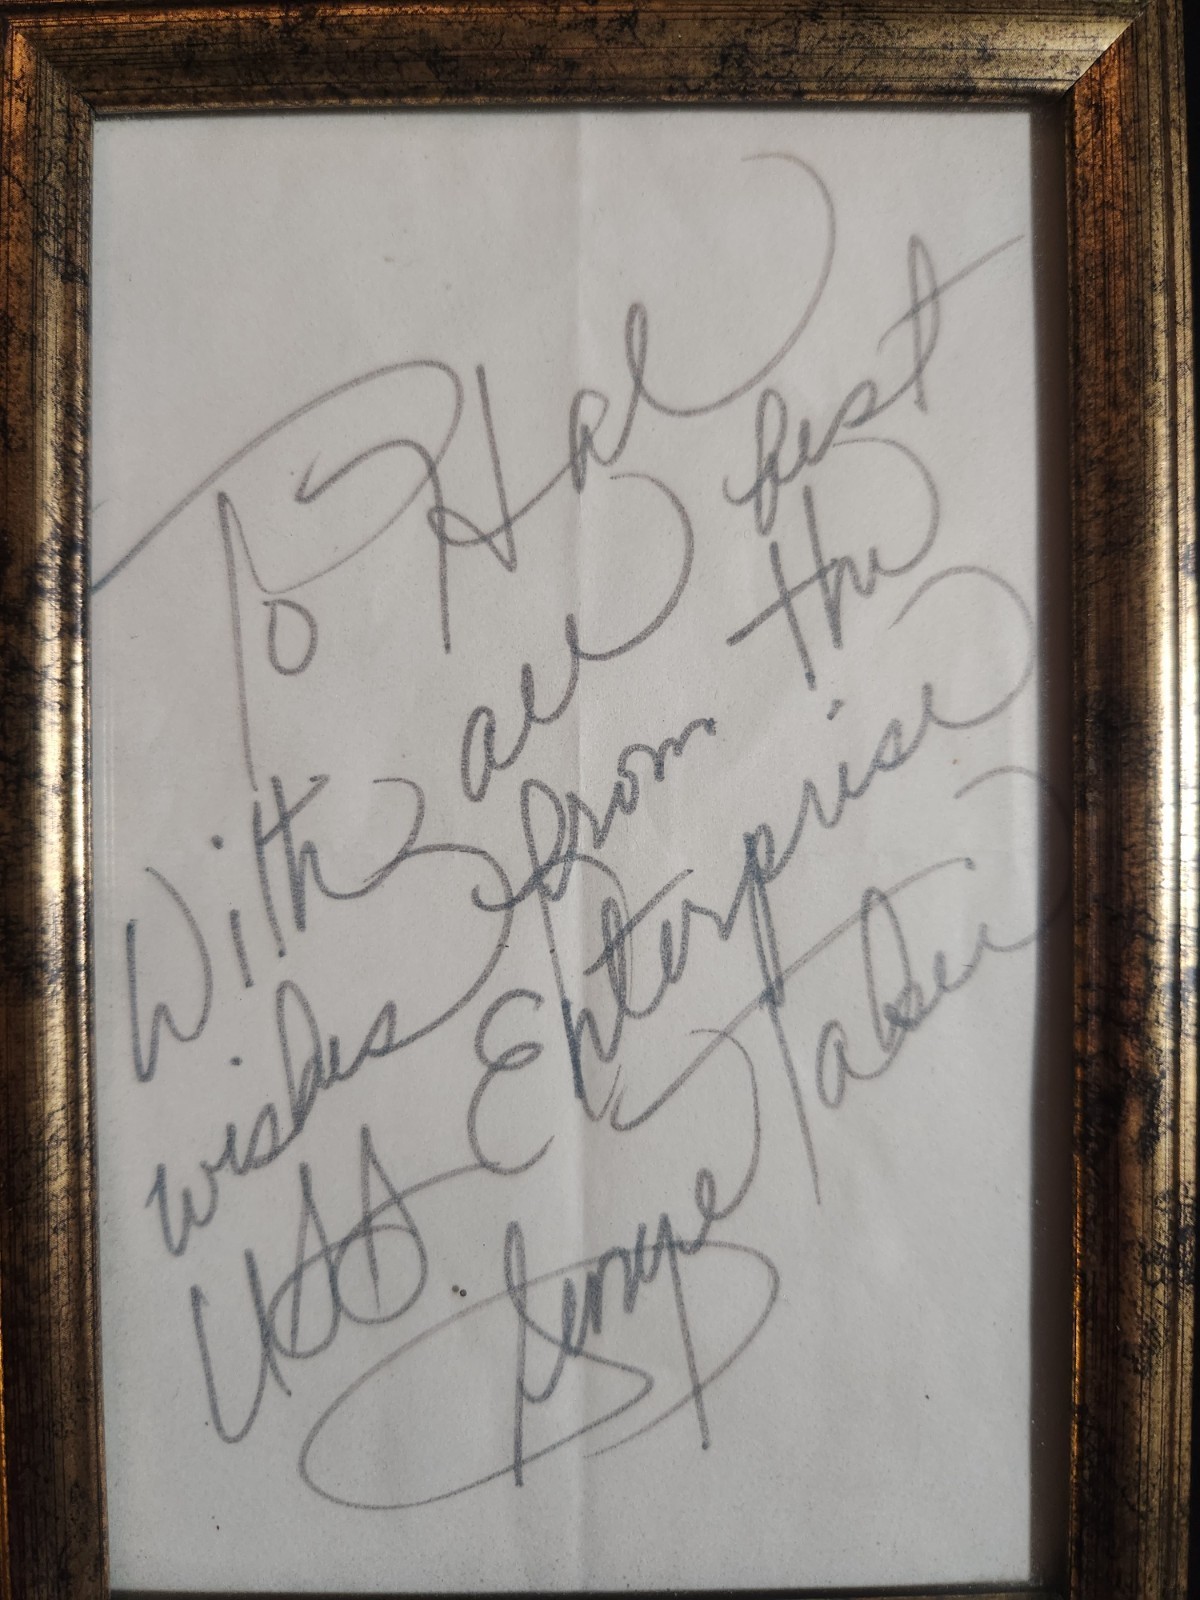 To Hal
With all best
wishes from the
USS Enterprise
George Takei